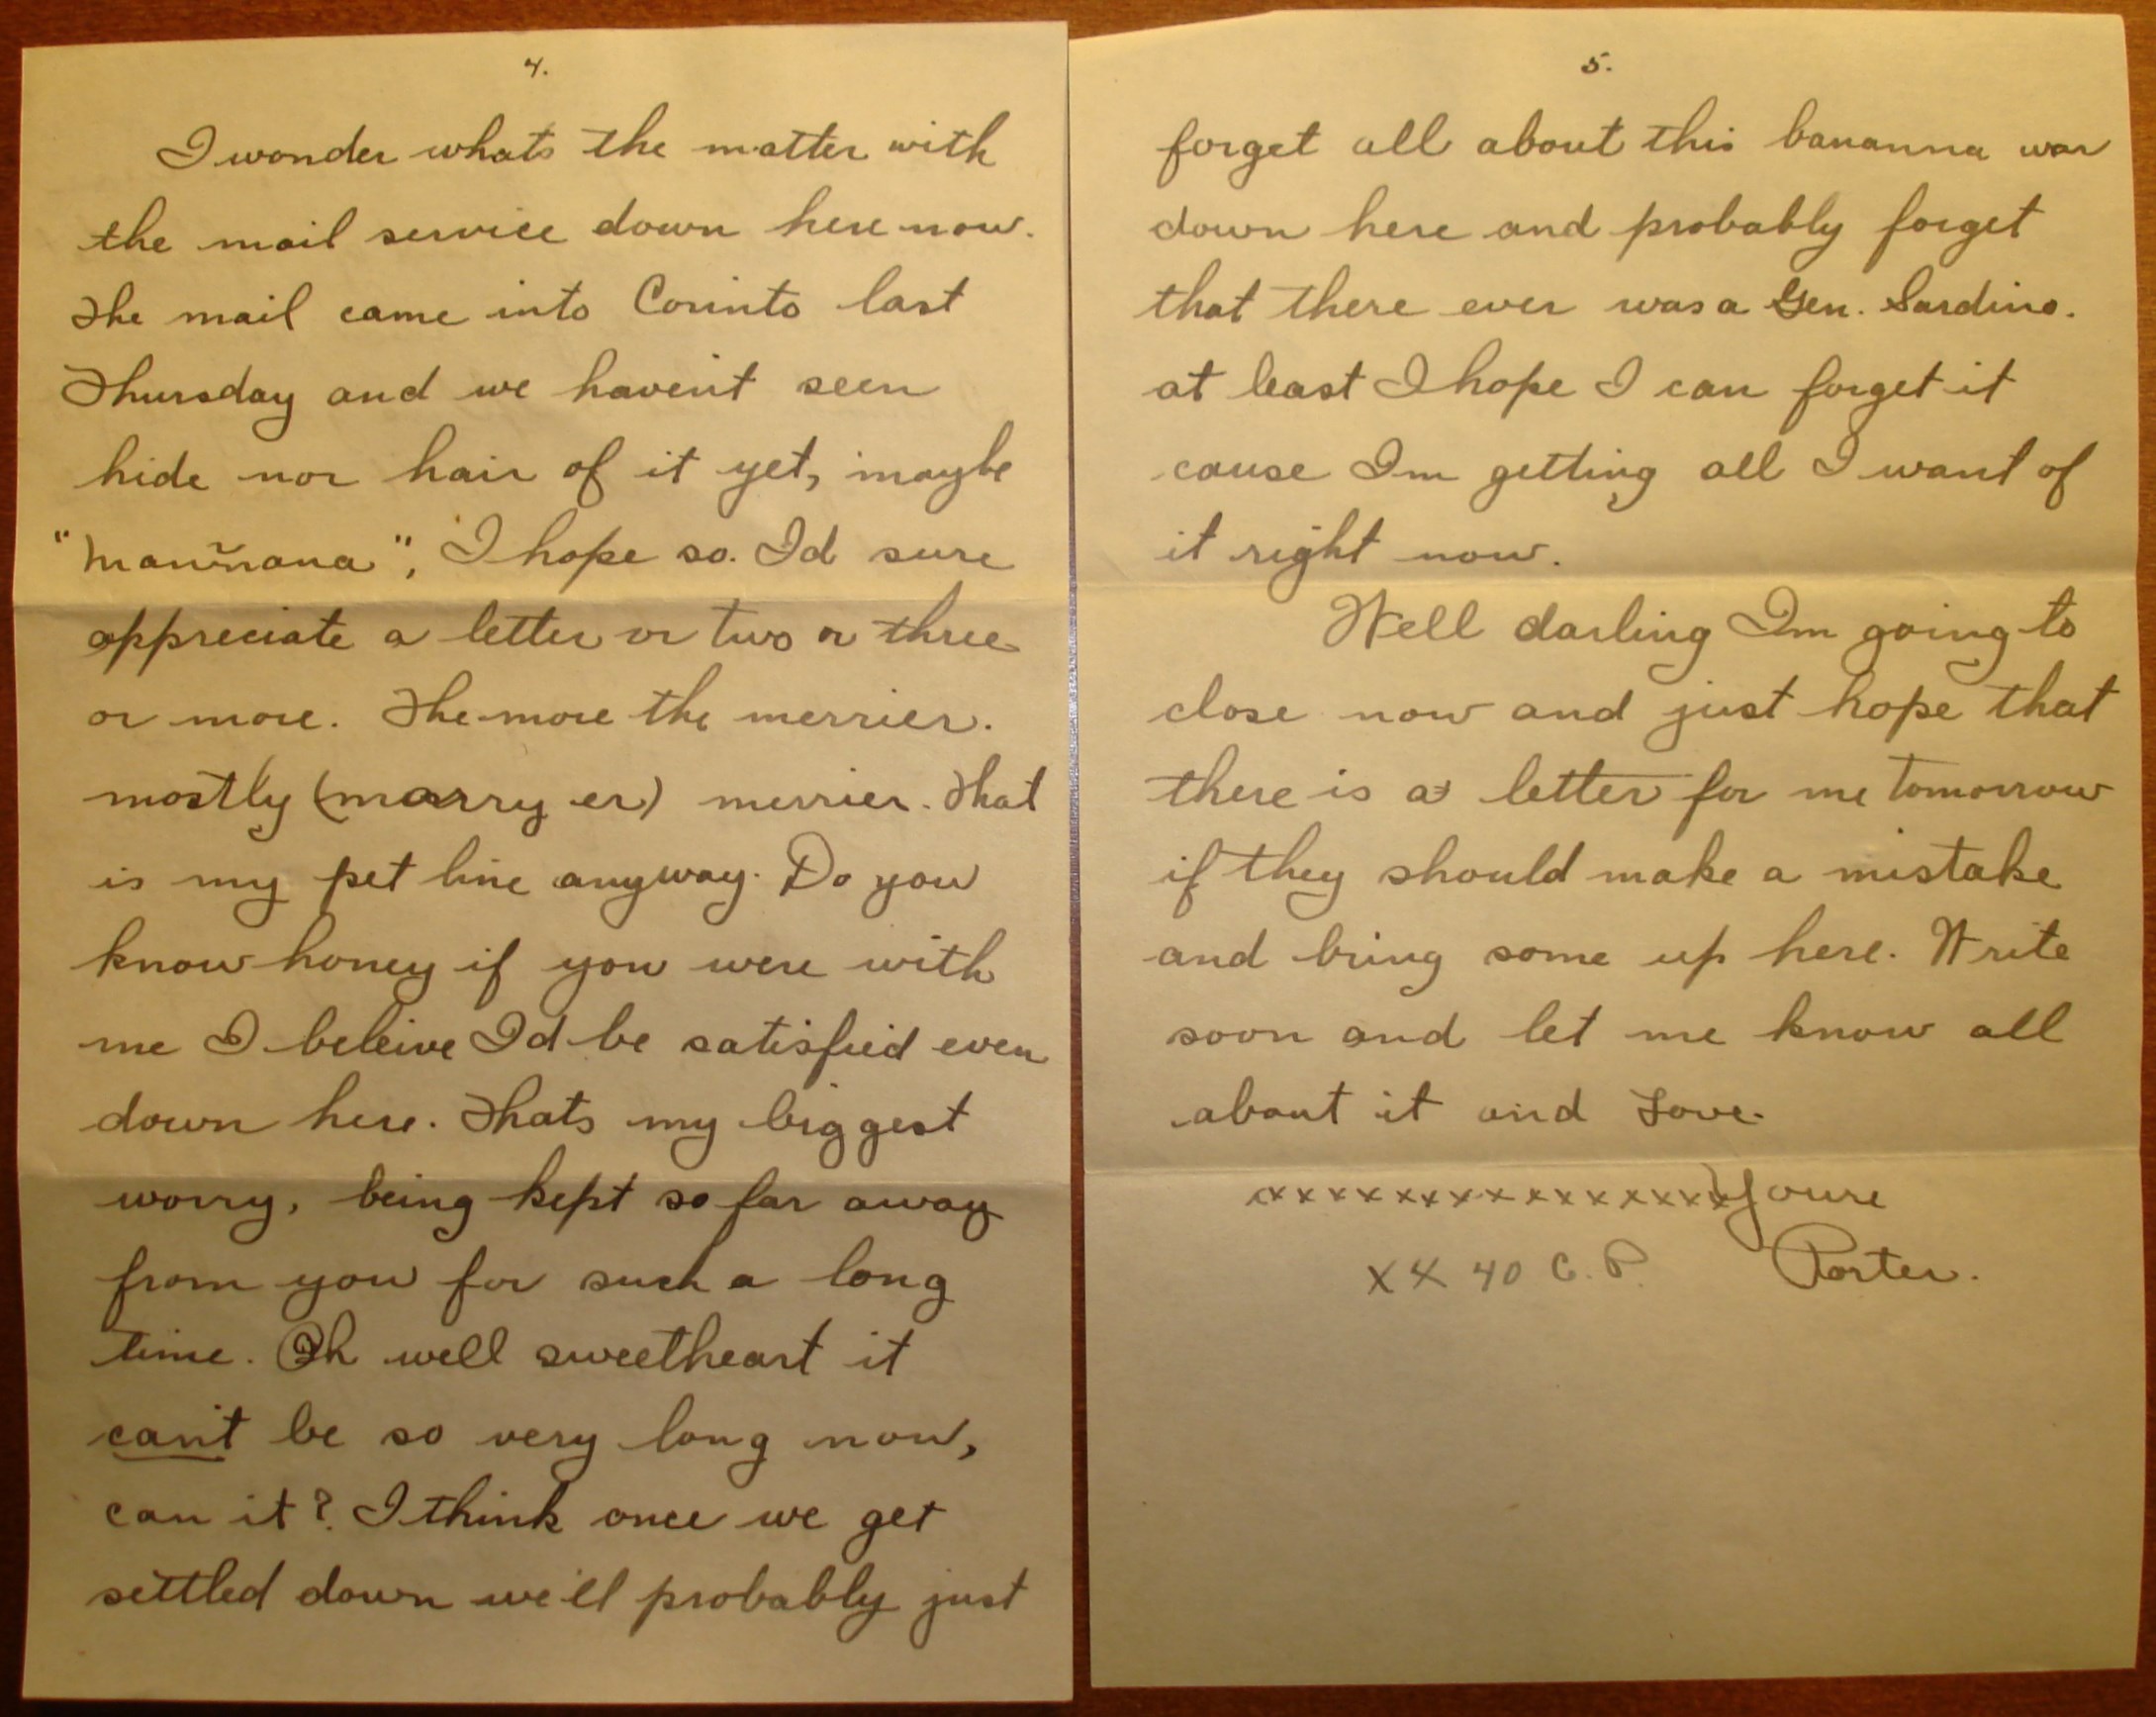 4.
I wonder whats the matter with
the mail service down here now.
The mail came into Corinto last
Thursday and we haven't seen
hide nor hair of it yet, maybe
"mañnana", I hope so. I'd sure
appreciate a letter or two or three
or more. The more the merrier.
mostly (marry er) merrier. That
is my pet line anyway. Do you
know honey if you were with
me I beleive I'd be satisfied even
down here. Thats my biggest
worry, being kept so far away
from you for such a long
time. Oh well sweetheart it
can't be so very long now,
can it? I think once we get
settled down we'll probably just
5.
forget all about this bananna war
down here and probably forget
that there ever was a Gen. Sardino.
at least I hope I can forget it
cause Im getting all I want of
it right now.
Well darling I'm going to
close now and just hope that
there is a letter for me tomorrow
if they should make a mistake
and bring some up here. Write
soon and let me know all
about it and Love.
xxxxxxxxxxxxxxxx Youre
XX 40 C.P. Porter.